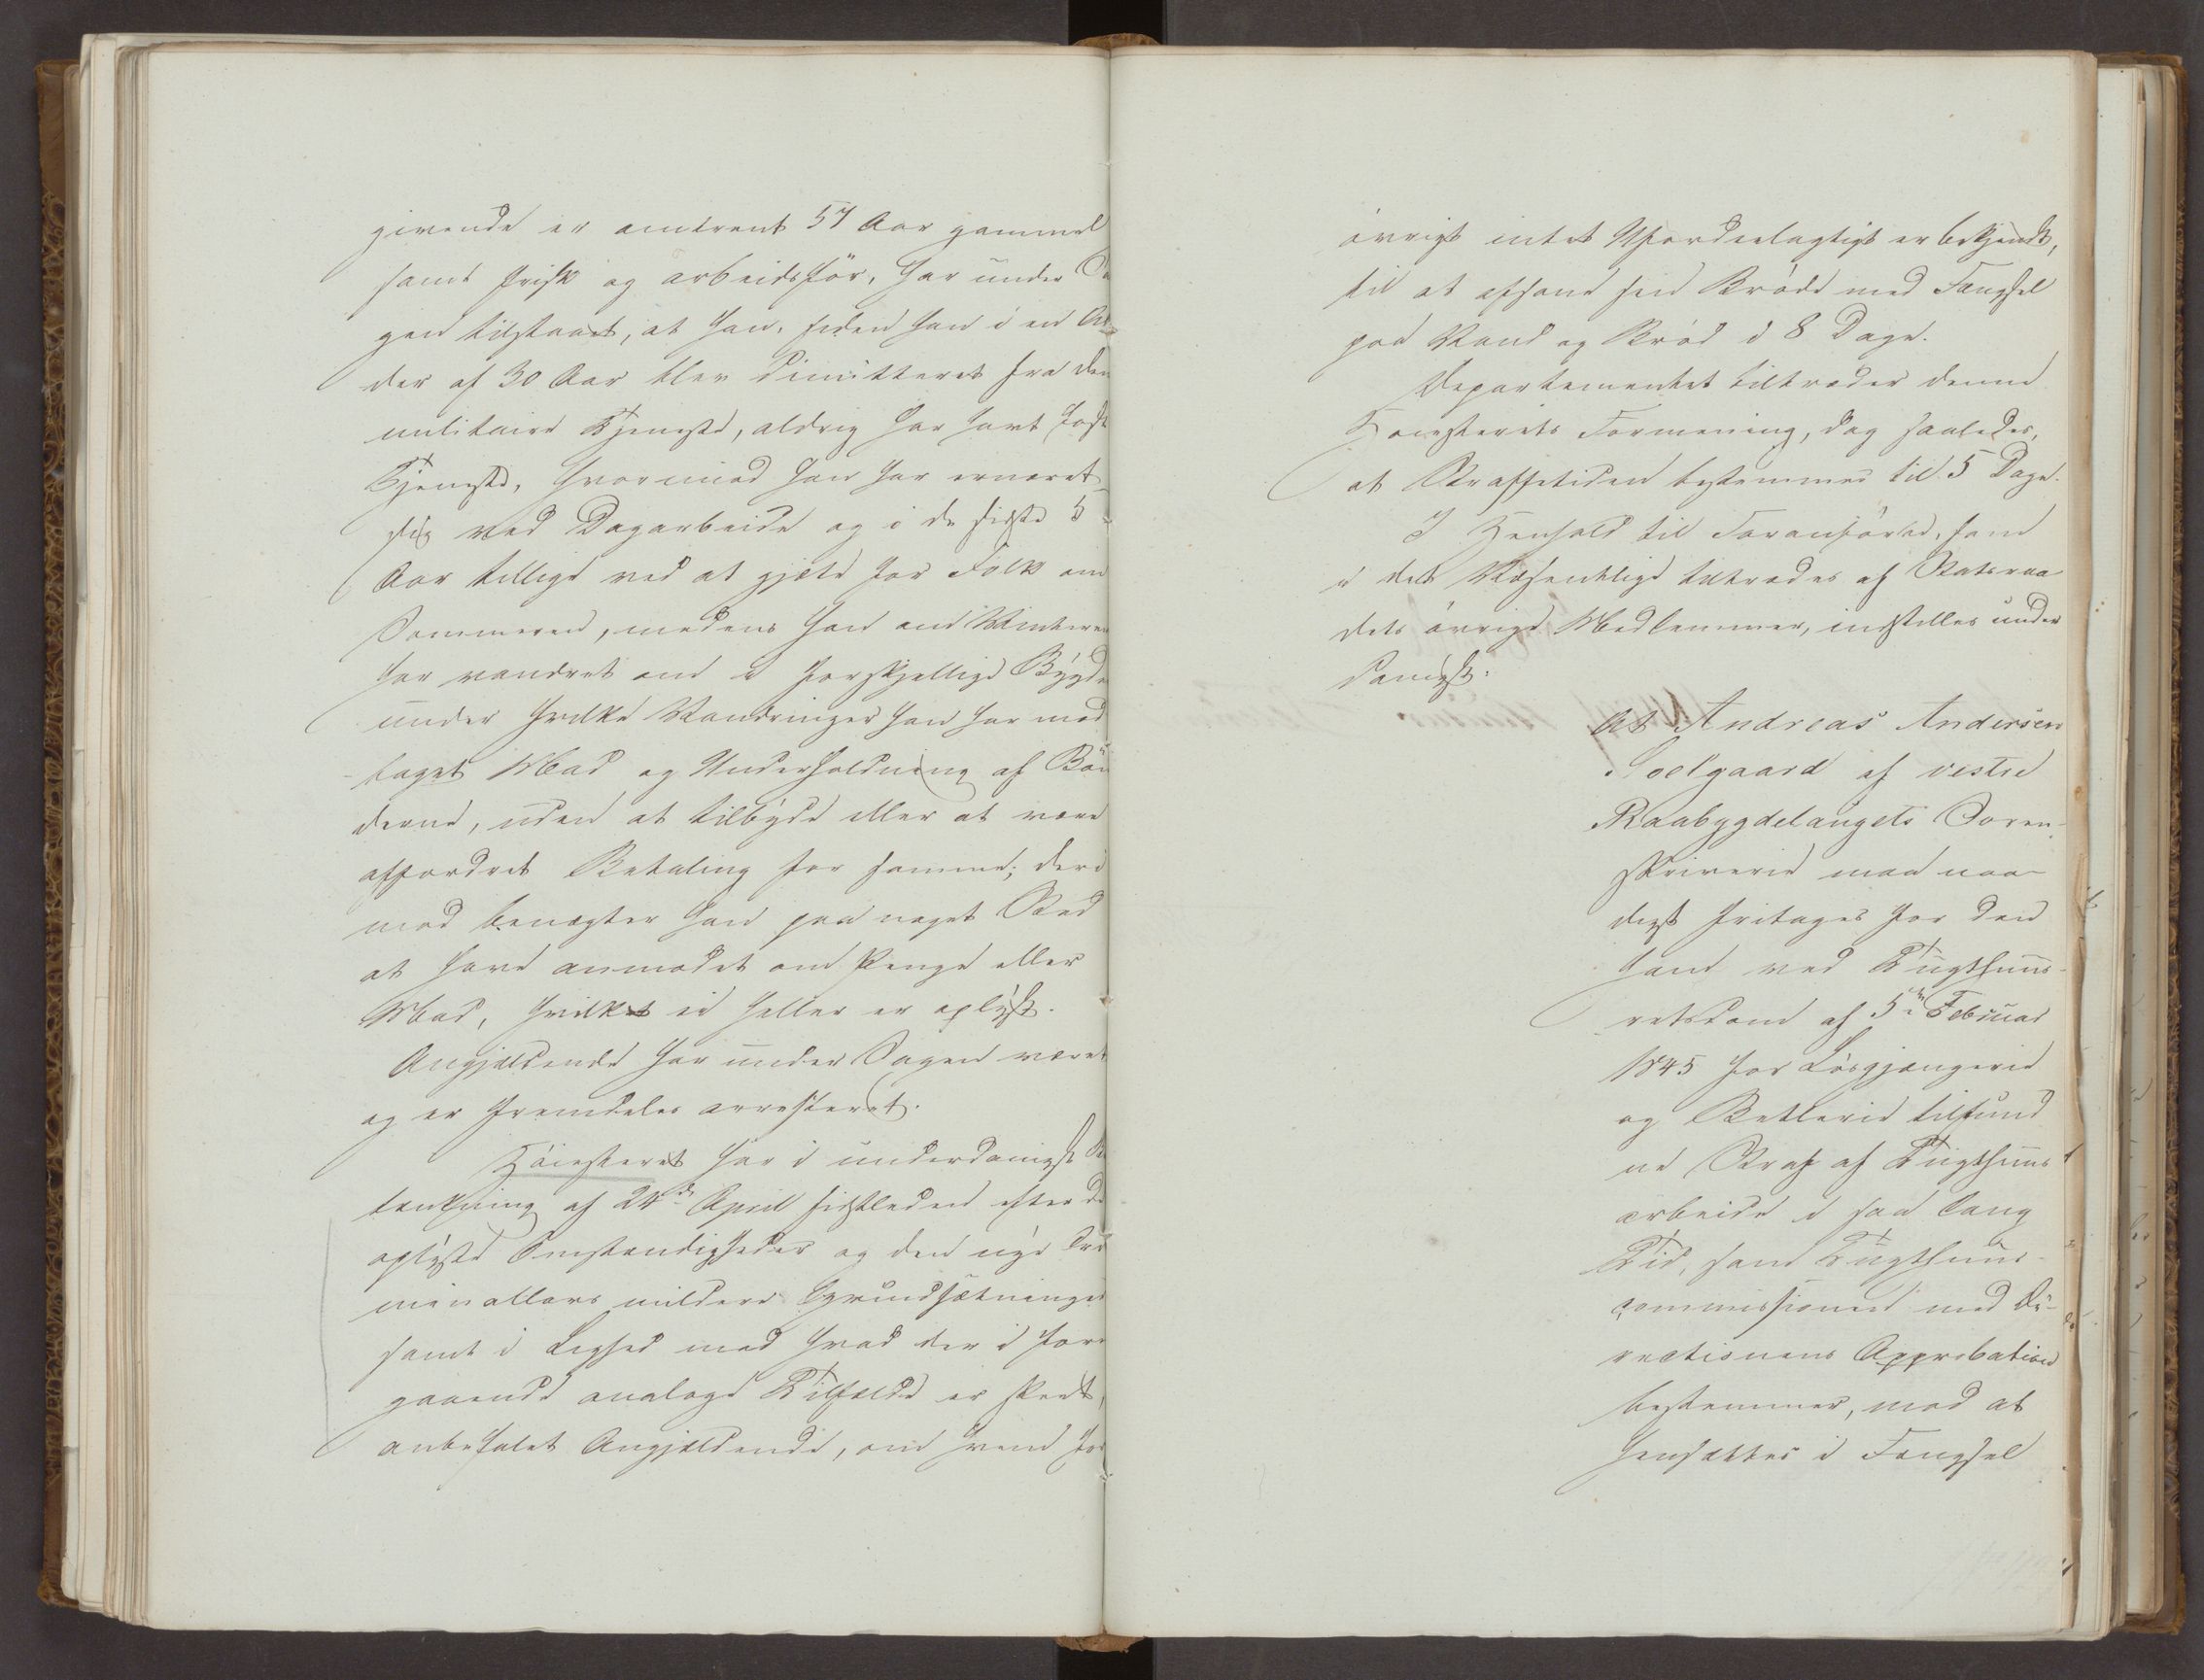 givende er omtrent 57 Aar gammel
samt frisk og arbeidsför, har under Sa
gen tilstaaet, at han, siden han i en Al
der af 30 Aar blev dimitteret fra den
militaire Tjeneste, aldrig har havt fast
Tjeneste, hvorimod han har ernæret
sig ved Dagarbeide og i de sidste 5
Aar tillige ved at gjæte for Folk om
Sommeren, medens han om Vinteren
har vandret om i forskjellige Bygder
under hvilke Vandringer han har mod
taget Mad og Underholdning af Bön
derne, uden at tilbyde eller at være
affordret Betaling for samme; deri
mod benægter han paa noget Sted
at have anmodet om Penge eller
Mad, hvilket ei heller er oplyst.
Angjældende har under Sagen været
og er fremdeles arresteret.
Höiesteret har i underdanigst Be
tænkning af 24de April sidstleden efter de
oplyste Omstændigheder og den nye Cri
minallovs mildere Grundsætninger
samt i Lighed med hvad der i fore
gaaende analoge Tilfælde er skeet,
anbefalet Angjældende, om hvem for
övrigt intet Ufordeelagtigt er bekjendt,
til at afsone sin Bröde med Fængsel
paa Vand og Bröd i 8 Dage.
Departementet tiltræder denne
Höiesterets Formening, dog saaledes,
at Straffetiden bestemmes til 5 Dage.
I Henhold til Foranförte, som
i det Væsentlige tiltrædes af Statsraa
dets övrige Medlemmer, indstilles under
danigst:
At Andreas Andersen
Soelgaard af vestre
Raabygdelaugets Soren-
skriverie maa naa-
digst fritages for den
ham ved Tugthuus-
retsdom af 5te Februar
1845 for Lösgjængerie
og Betlerie tilfund
ne Straf af Tugthuus
arbeide i saa lang
Tid, som Tugthuus-
commissionen med Di-
rectionens Approbation
bestemmer, mod at
hensættes i Fængsel